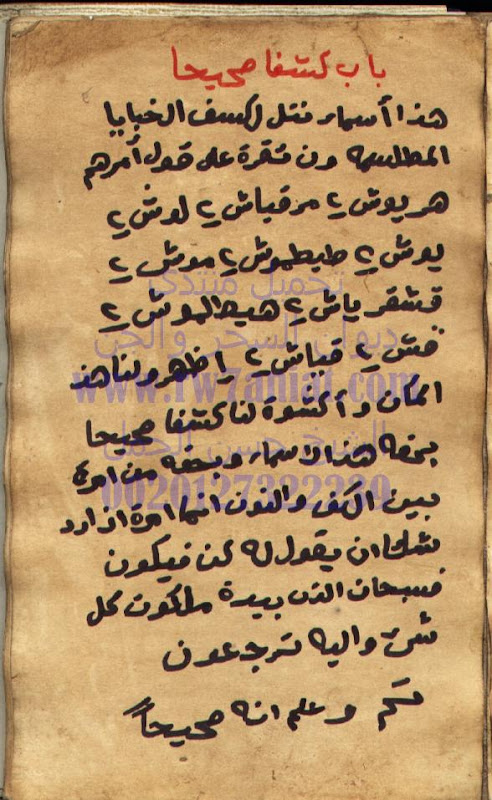 باب كشفا صحيحا
هذا أسمار فتل لكسف الخبايا
المطلسمه ون تقرة على قول أمرهم
هريوش ٢ مرقياش ٢ لوش ٢
يوش ٢ طيطموش ٢ موش ٢
قشقرياش ٢ هيطالموش ٢
فش ٢ قياش ٢ اظهرو لنا هذ
المكان وأكشوة لنا كشفا صحيحا
بحقه هذ الاسمار وبحقه من امرة
بين الكف والنون انما امرة اذ ارد
شك ان يقول له كن فيكون
فسبحان الذى بيدة ملكوت كل
شىء واليه ترجعون
وعلم انه صحيحا
تحميل منتدى
ديوان السحر والجن
www.rw7aniat.com
الشيخ حسن
0020127322239